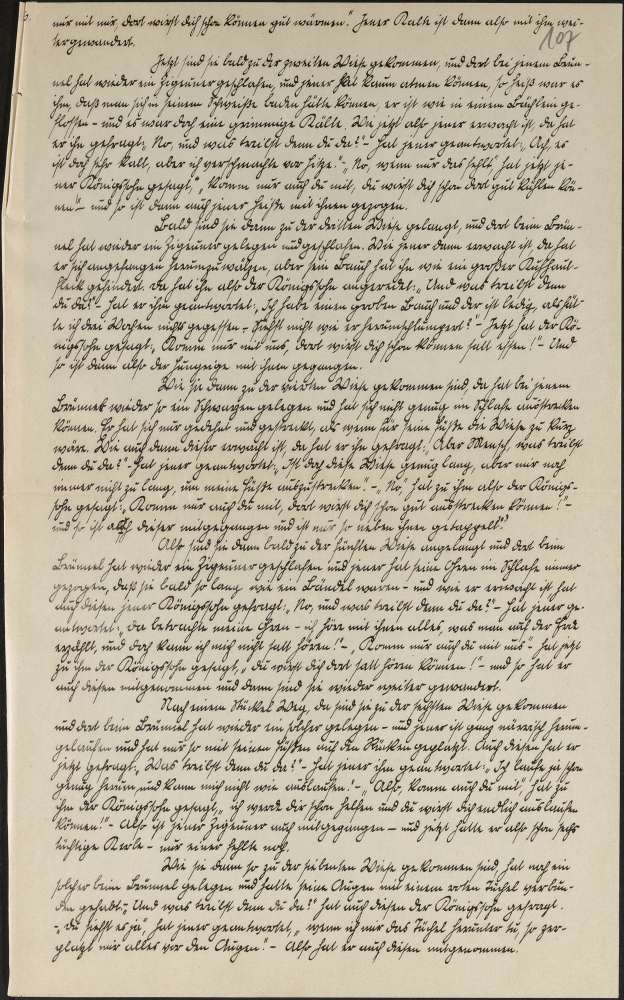 107
nur mit mir, dort wirst dich schon können gut wärmen." Jener Kalte ist dann also mit ihm wei-
tergewandert.
Jetzt sind sie bald zu der zweiten Wiese gekommen, und dort bei jenem Brün-
nel hat wieder ein Zigeuner geschlafen, und jener hat kaum atmen können, so heiß war es
ihm, daß man sich in seinem Schweiße baden hätte können, er ist wie in einem Bächlein ge-
flossen – und es war doch eine grimmige Kälte. Wie jetzt also jener erwacht ist, da hat
er ihn gefragt: No, und was treibst denn du da?" – hat jener geantwortet: „Ach, es
ist doch sehr kalt, aber ich verschmachte vor Hitze." – „No, wenn nur das fehlt" hat jetzt je-
ner Königssohn gesagt, „komm nur auch du mit, du wirst dich schon dort gut kühlen kön-
nen" – und so ist dann auch jener Heiße mit ihnen gezogen.
Bald sind sie dann zu der dritten Wiese gelangt, und dort beim Brün-
nel hat wieder ein Zigeuner gelegen und geschlafen. Wie jener dann erwacht ist, da hat
er sich angefangen herumzuwälzen, aber sein Bauch hat ihn wie ein großer Kuhhaut-
fleck gehindert. Da hat ihn also der Königssohn angeredet: „Und was treibst denn
du da?" – hat er ihm geantwortet: „Ich habe einen großen Bauch und der ist ledig, als hät-
te ich drei Wochen nichts gegessen – siehst nicht wie er herumschlumpert?" – Jetzt hat der Kö-
nigssohn gesagt: „Komm nur mit uns, dort wirst dich schon können satt essen!" – Und
so ist dann also der Hungrige mit ihnen gegangen.
Wie sie dann zu der vierten Wiese gekommen sind, da hat bei jenem
Brünnel wieder so ein Schwarzer gelegen und hat sich nicht genug im Schlafe ausstrecken
können. Er hat sich nur gedehnt und gestreckt, als wenn für seine Füße die Wiese zu kurz
wäre. Wie auch dann dieser erwacht ist, da hat er ihn gefragt: „Aber Mensch, was treibst
denn du da?" – Hat jener geantwortet: „Ist doch diese Wiese genug lang, aber mir noch
immer nicht zu lang, um meine Füße auszustrecken." – „No," hat zu ihm also der Königs-
sohn gesagt: „Komm nur auch du mit, dort wirst dich schon gut ausstrecken können!" –
und so ist auch dieser mitgegangen und ist nur so neben ihnen getappelt.
Also sind sie dann bald zu der fünften Wiese angelangt und dort beim
Brünnel hat wieder ein Zigeuner geschlafen und jener hat seine Ohren im Schlafe immer
gezogen, daß sie bald so lang wie ein Bändel waren – und wie er erwacht ist hat
auch diesen jener Königssohn gefragt: „No, und was treibst denn du da?" – Hat jener ge-
antwortet: „Da betrachte meine Ohren – ich höre mit ihnen alles, was man auf der Erde
erzählt, und doch kann ich mich nicht satt hören!" – „Komm nur auch du mit uns" – hat jetzt
zu ihm der Königssohn gesagt, „du wirst dich dort satt hören können!" – und so hat er
auch diesen mitgenommen und dann sind sie wieder weiter gewandert.
Nach einem Stückel Weg, da sind sie zu der sechsten Wiese gekommen
und dort beim Brünnel hat wieder ein solcher gelegen – und jener ist ganz närrisch herum-
gelaufen und hat nur so mit seinen Füßen auf den Rücken geglatzt. Auch diesen hat er
jetzt gefragt: „Was treibst denn du da?" – Hat jener ihm geantwortet: „Ich laufe ja schon
genug herum, und kann mich nicht wie auslaufen." – „Also, komm auch du mit", hat zu
ihm der Königssohn gesagt, „ich werde dir schon helfen und du wirst dich endlich auslaufen
können!" – Also ist jener Zigeuner auch mitgegangen – und jetzt hatte er also schon sechs
tüchtige Kerle – nur einer fehlte noch.
Wie sie dann so zu der siebenten Wiese gekommen sind, hat noch ein
solcher beim Brünnel gelegen und hatte seine Augen mit einem roten Tüchel verbun-
den gehabt: „Und was treibst denn du da?" hat auch diesen der Königssohn gefragt.
– „Du siehst es ja", hat jener geantwortet, „wenn ich mir das Tüchel herunter tu, so zer-
platzt mir alles vor den Augen." – Also hat er auch diesen mitgenommen.